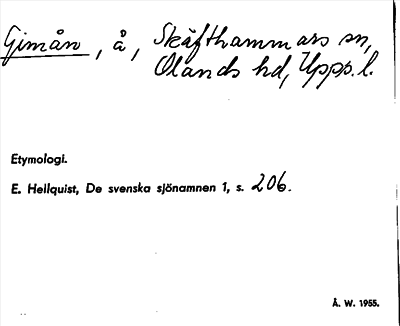 Gimån, å, Skäfthammars sn,
Olands hd, Uppl.
Etymologi.
E. Hellquist, De svenska sjönamnen 1, s. 206.
Å. W. 1955.